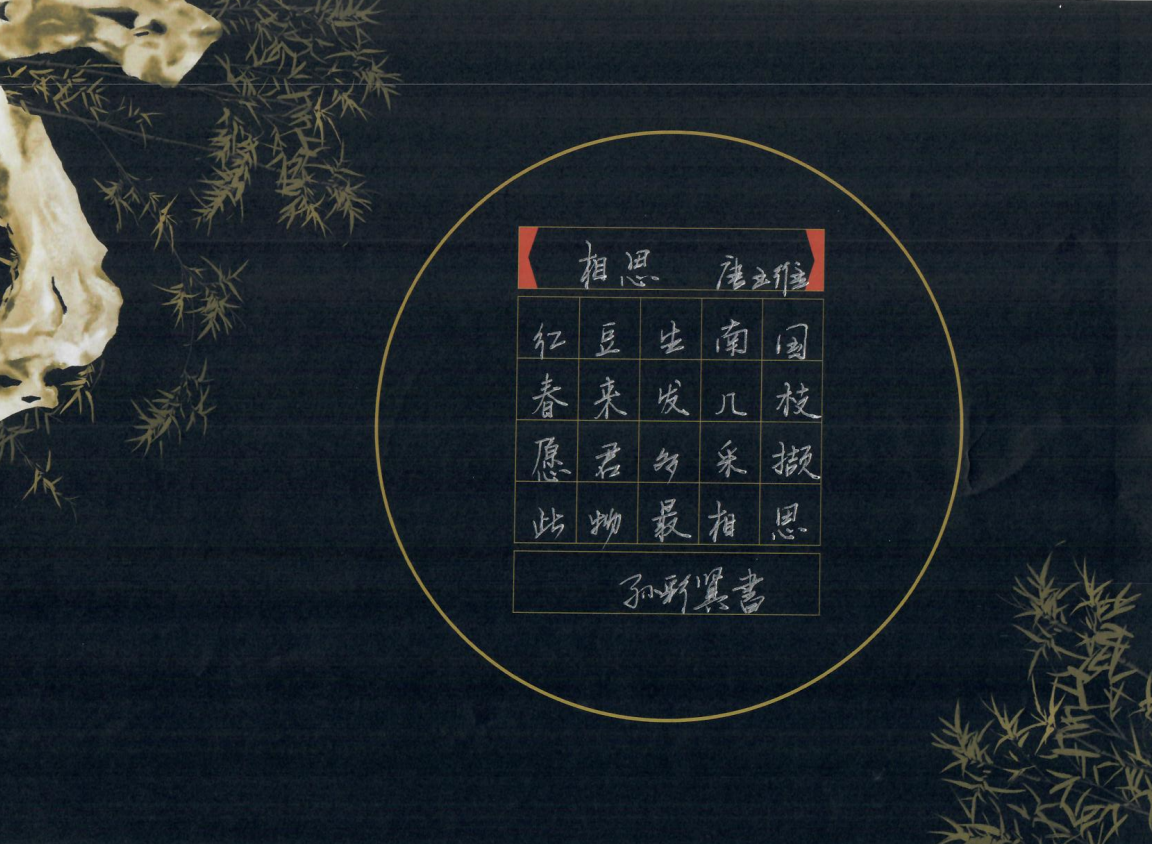 相思 唐王维
红豆生南国
春来发几枝
愿君多采撷
此物最相思
孙彩翼书